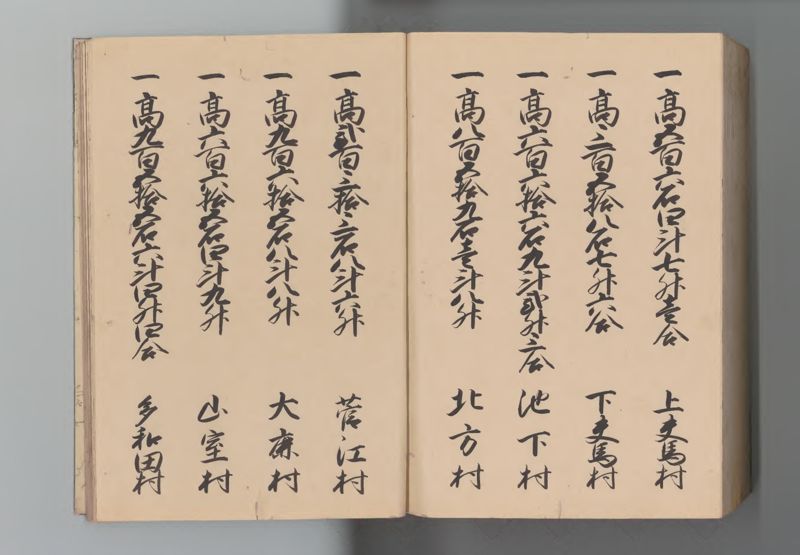 一 高五百六石四斗七升壱合 上夫馬村
一 高三百五拾八石七升六合 下夫馬村
一 高六百六拾六石九斗弐升三合 池下村
一 高八百五拾九石壱斗八升 北方村
一 高弐百三拾三石八斗六升 菅江村
一 高九百六拾五石八斗八升 大鹿村
一 高六百六拾五石四斗九升 山室村
一 高九百五拾五石六斗四升四合 多和田村